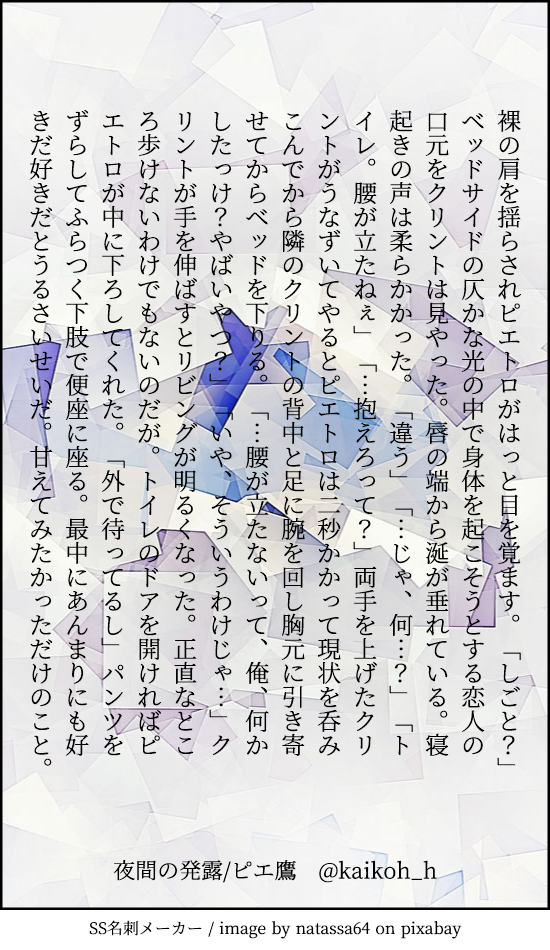 裸の肩を揺らされピエトロがはっと目を覚ます。「しごと？」
ベッドサイドの仄かな光の中で身体を起こそうとする恋人の
口元をクリントは見やった。唇の端から涎が垂れている。寝
起きの声は柔らかかった。「違う」「…じゃ、何…？」「ト
イレ。腰が立たねぇ」「…抱えろって？」両手を上げたクリ
ントがうなずいてやるとピエトロは二秒かかって現状を呑み
こんでから隣のクリントの背中と足に腕を回し胸元に引き寄
せてからベッドを下りる。「…腰が立たないって、俺、何か
したっけ？やばいやつ？」「いや、そういうわけじゃ…」ク
リントが手を伸ばすとリビングが明るくなった。正直なとこ
ろ歩けないわけでもないのだが。トイレのドアを開ければピ
エトロが中に下ろしてくれた。「外で待ってるし」パンツを
ずらしてふらつく下肢で便座に座る。最中にあんまりにも好
きだ好きだとうるさいせいだ。甘えてみたかっただけのこと。
夜間の発露/ピエ鷹　@kaikoh_h
SS名刺メーカー / image by natassa64 on pixabay